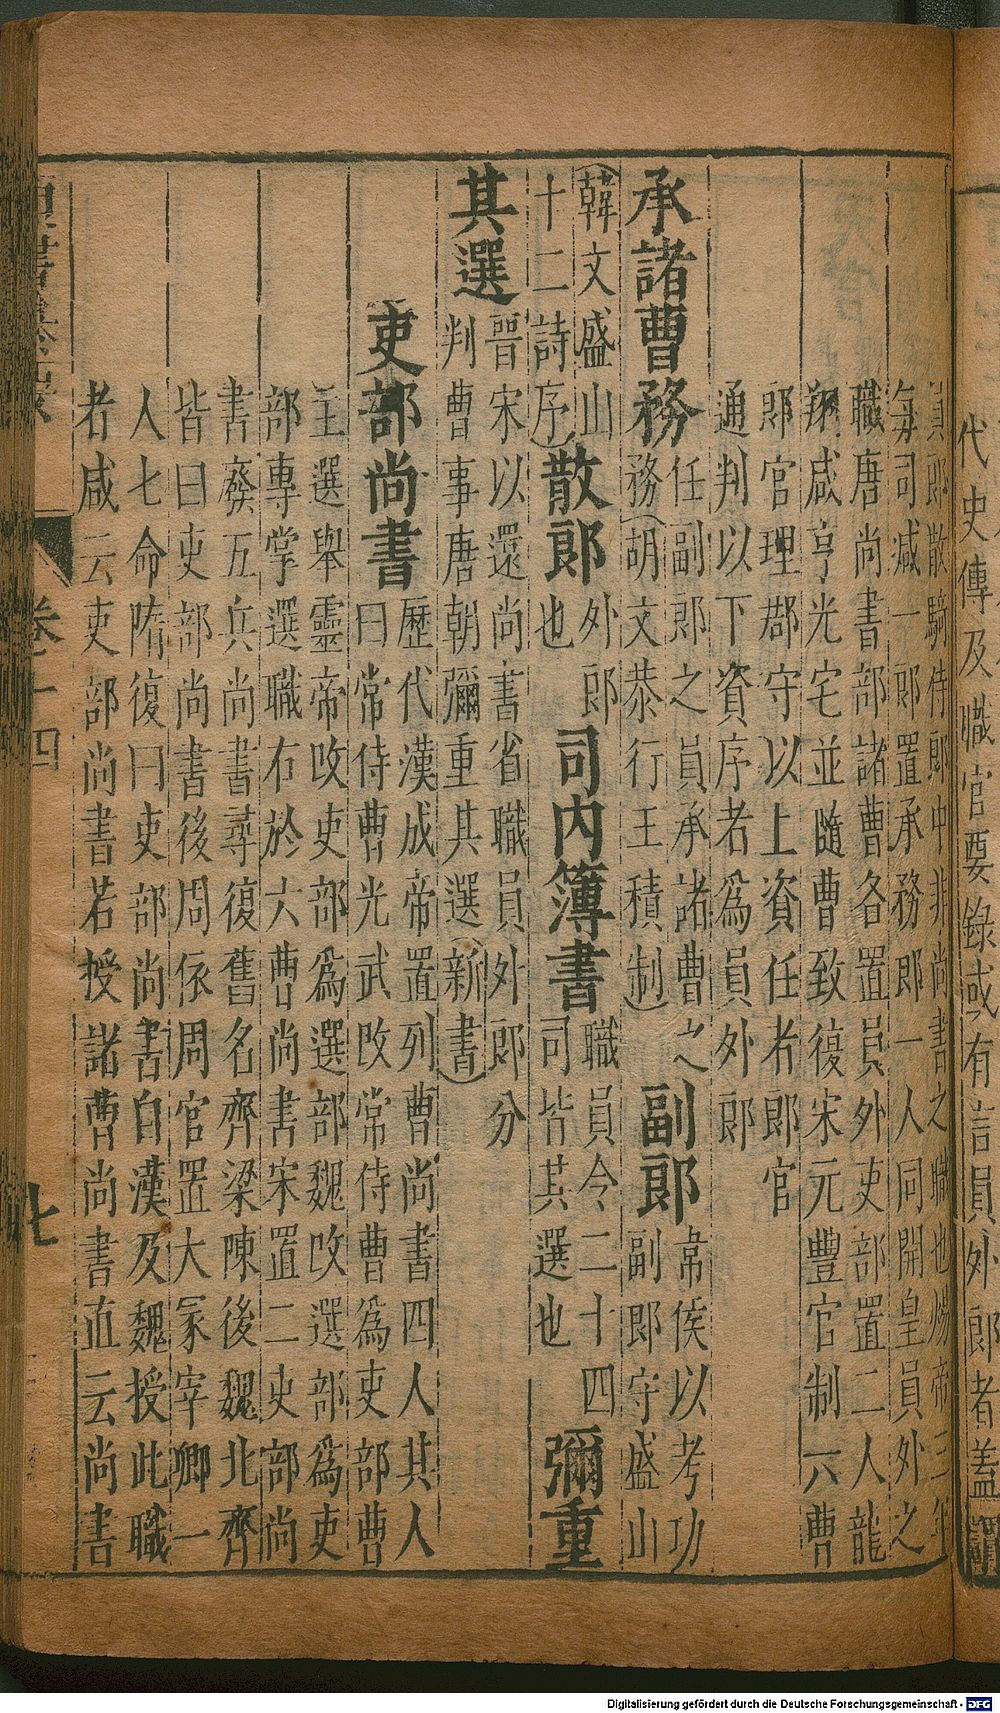 代史傳及職官要錄或有言員外郎者蓋謂
員郎散騎侍郎中非尚書之職也煬帝三年
每司減一郎置承務郎一人同開皇員外之
職唐尚書部諸曹各置員外吏部置二人龍
朔咸亨光宅並隨曹致復宋元豐官制六曹
郎官理郡守以上資任者郎官
通判以下資序者為員外郎
承諸曹務 任副郎之員承諸曹之務(胡文恭行王積制) 副郎 韋侯以考功副郎守盛山
(韓文盛山十二詩序) 散郎 外郎也 司內簿書 職員令二十四司皆其選也 彌重
其選 晉宋以還尚書省職員外郎分判曹事唐朝彌重其選(新書)
吏部尚書 歷代漢成帝置列曹尚書四人其人曰常侍曹光武改常侍曹為吏部曹
主選舉靈帝改吏部為選部魏改選部為吏
部專掌選職右於六曹尚書宋置二吏部尚
書廢五兵尚書尋復舊名齊梁陳後魏北齊
皆曰吏部尚書後周依周官置大冢宰卿一
人七命隋復曰吏部尚書自漢及魏授此職
者咸云吏部尚書若授諸曹尚書直云尚書
卷十四
七
Digitalisierung gefördert durch die Deutsche Forschungsgemeinschaft - DFG